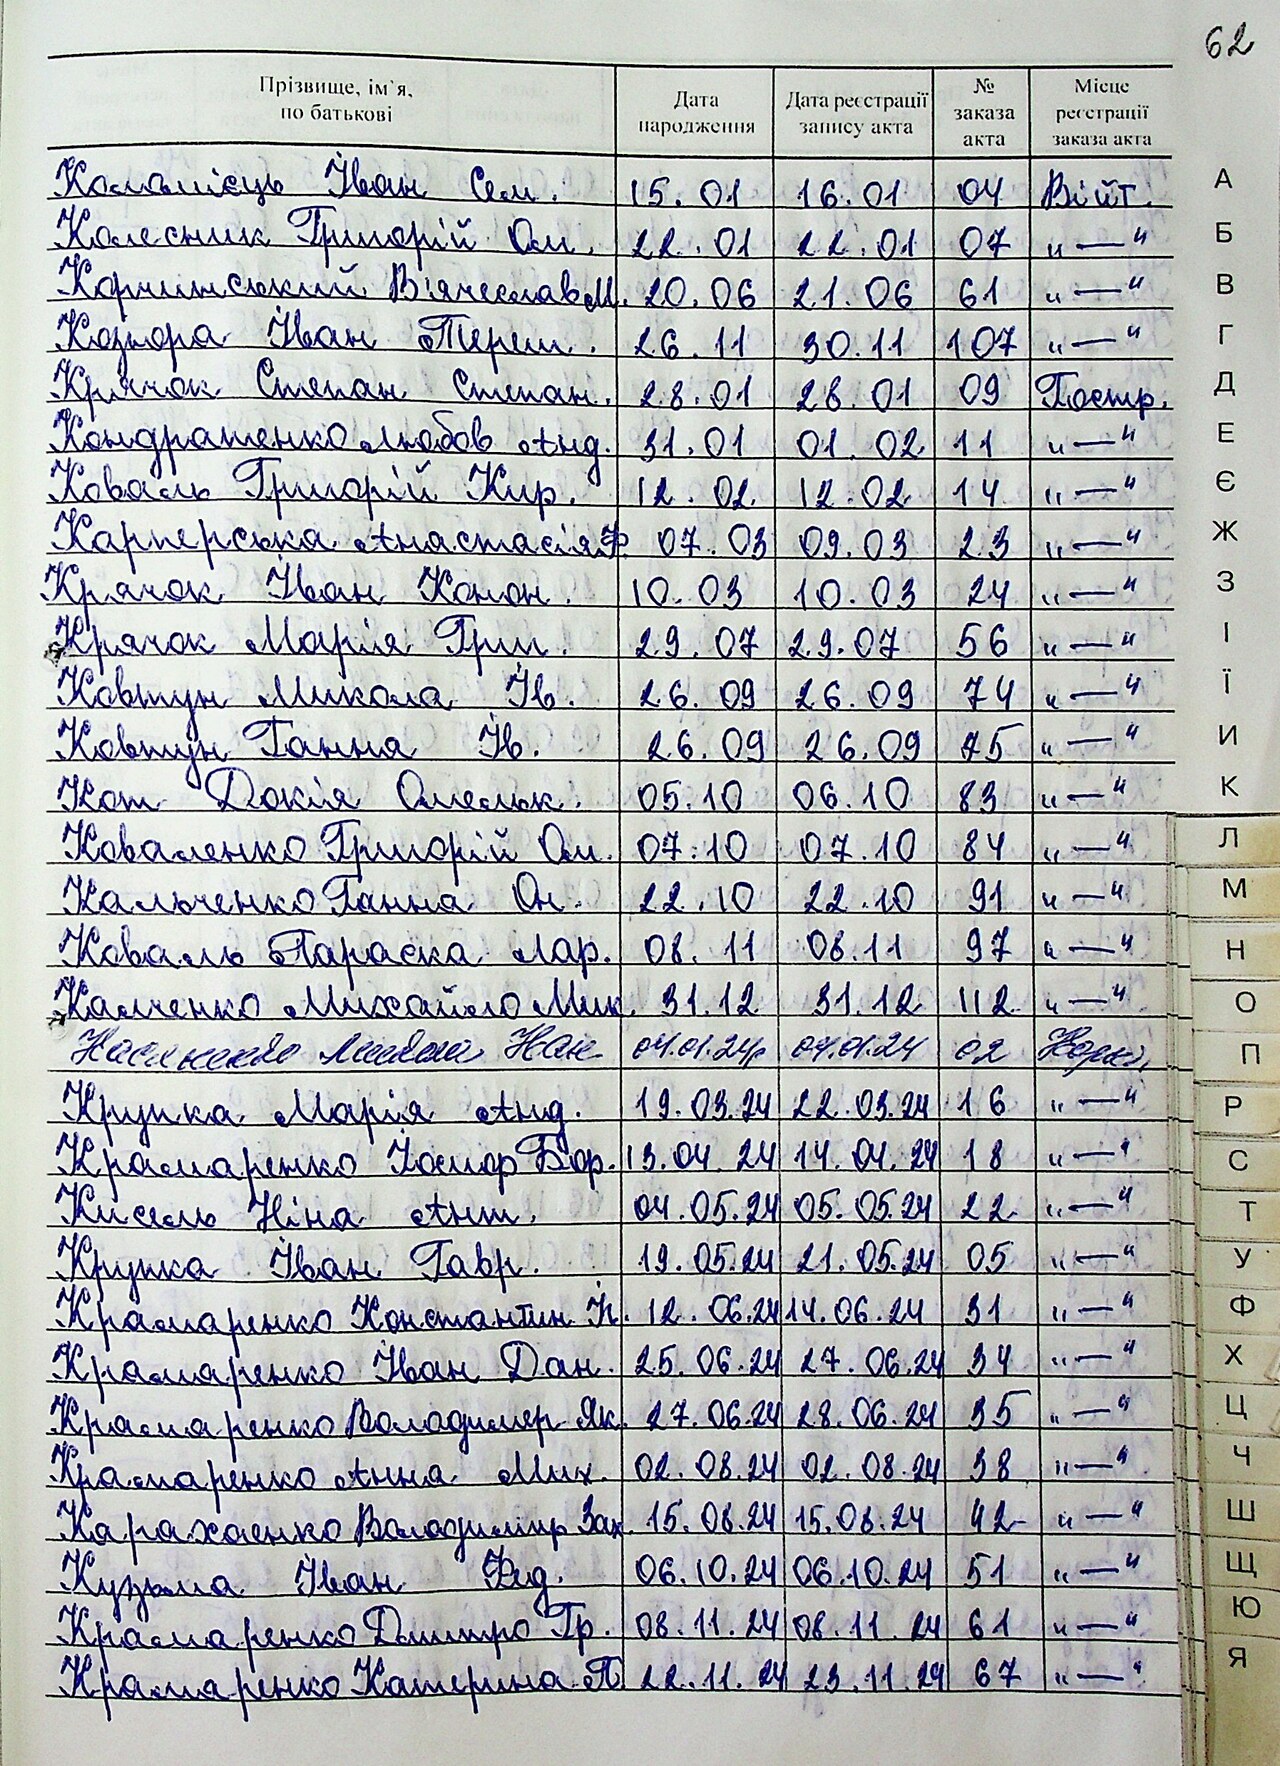 62
Прізвище, ім'я, по батькові Дата народження Дата реєстрації запису акта № заказа акта Місце реєстрації заказа акта
Коломієць Іван Сем. 15.01 16.01 04 Війт.
Колесник Григорій Ом. 22.01 22.01 07 „—"
Корчинський Вячеслав М. 20.06 21.06 61 „—"
Іван Тереш. 26.11 30.11 107 „—"
Крячок Степан Степан. 28.01 28.01 09 Гостр.
Кондратенко Любов Анд. 31.01 01.02 11 „—"
Коваль Григорій Кир. 12.02 12.02 14 „—"
Карперська Анастасія Ф 07.03 09.03 23 „—"
Крячок Іван Конон. 10.03 10.03 24 „—"
Крячок Марія Григ. 29.07 29.07 56 „—"
Ковтун Микола Ів. 26.09 26.09 74 „—"
Ковтун Ганна Ів. 26.09 26.09 75 „—"
Кот Докія Омельк. 05.10 06.10 83 „—"
Коваленко Григорій Ом. 07.10 07.10 84 „—"
Кальченко Ганна Он. 22.10 22.10 91 „—"
Коваль Параска Лар. 08.11 08.11 97 „—"
Калченко Михайло Мик. 31.12 31.12 112 „—"
04.01.24р 04.01.24 02
Крупка Марія Анд. 19.03.24 22.03.24 16 „—"
Крамаренко Йосип Бор. 13.04.24 14.04.24 18 „—"
Кисель Ніна Ант. 04.05.24 05.05.24 22 „—"
Крупка Іван Гавр. 19.05.24 21.05.24 05 „—"
Крамаренко Константин К. 12.06.24 14.06.24 31 „—"
Крамаренко Іван Дан. 25.06.24 27.06.24 34 „—"
Крамаренко Володимер Як. 27.06.24 28.06.24 35 „—"
Крамаренко Анна Мих. 02.08.24 02.08.24 38 „—"
Володимир Зах. 15.08.24 15.08.24 42 „—"
Кузьма Іван Фед. 06.10.24 06.10.24 51 „—"
Крамаренко Дмитро Гр. 08.11.24 08.11.24 61 „—"
Крамаренко Катерина П 22.11.24 23.11.24 67 „—"
А
Б
В
Г
Д
Е
Є
Ж
З
І
Ї
И
К
Л
М
Н
О
П
Р
С
Т
У
Ф
Х
Ц
Ч
Ш
Щ
Ю
Я